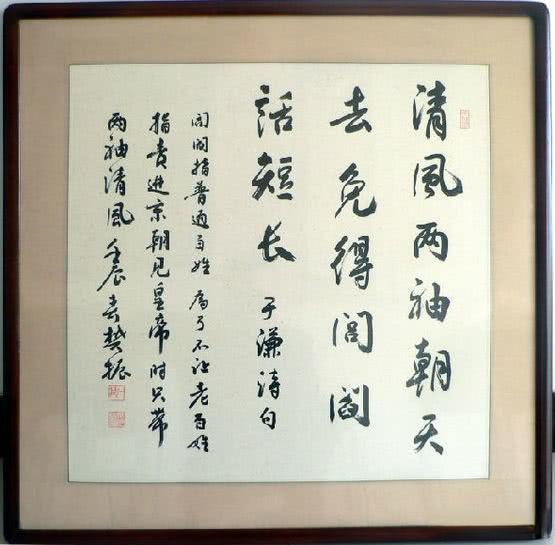 清風两袖朝天
去免得闾阎
話短长 于谦诗句
闾阎指普通百姓 为了不让老百姓
指责进京朝见皇帝时只带
两袖清風 壬辰春樊振